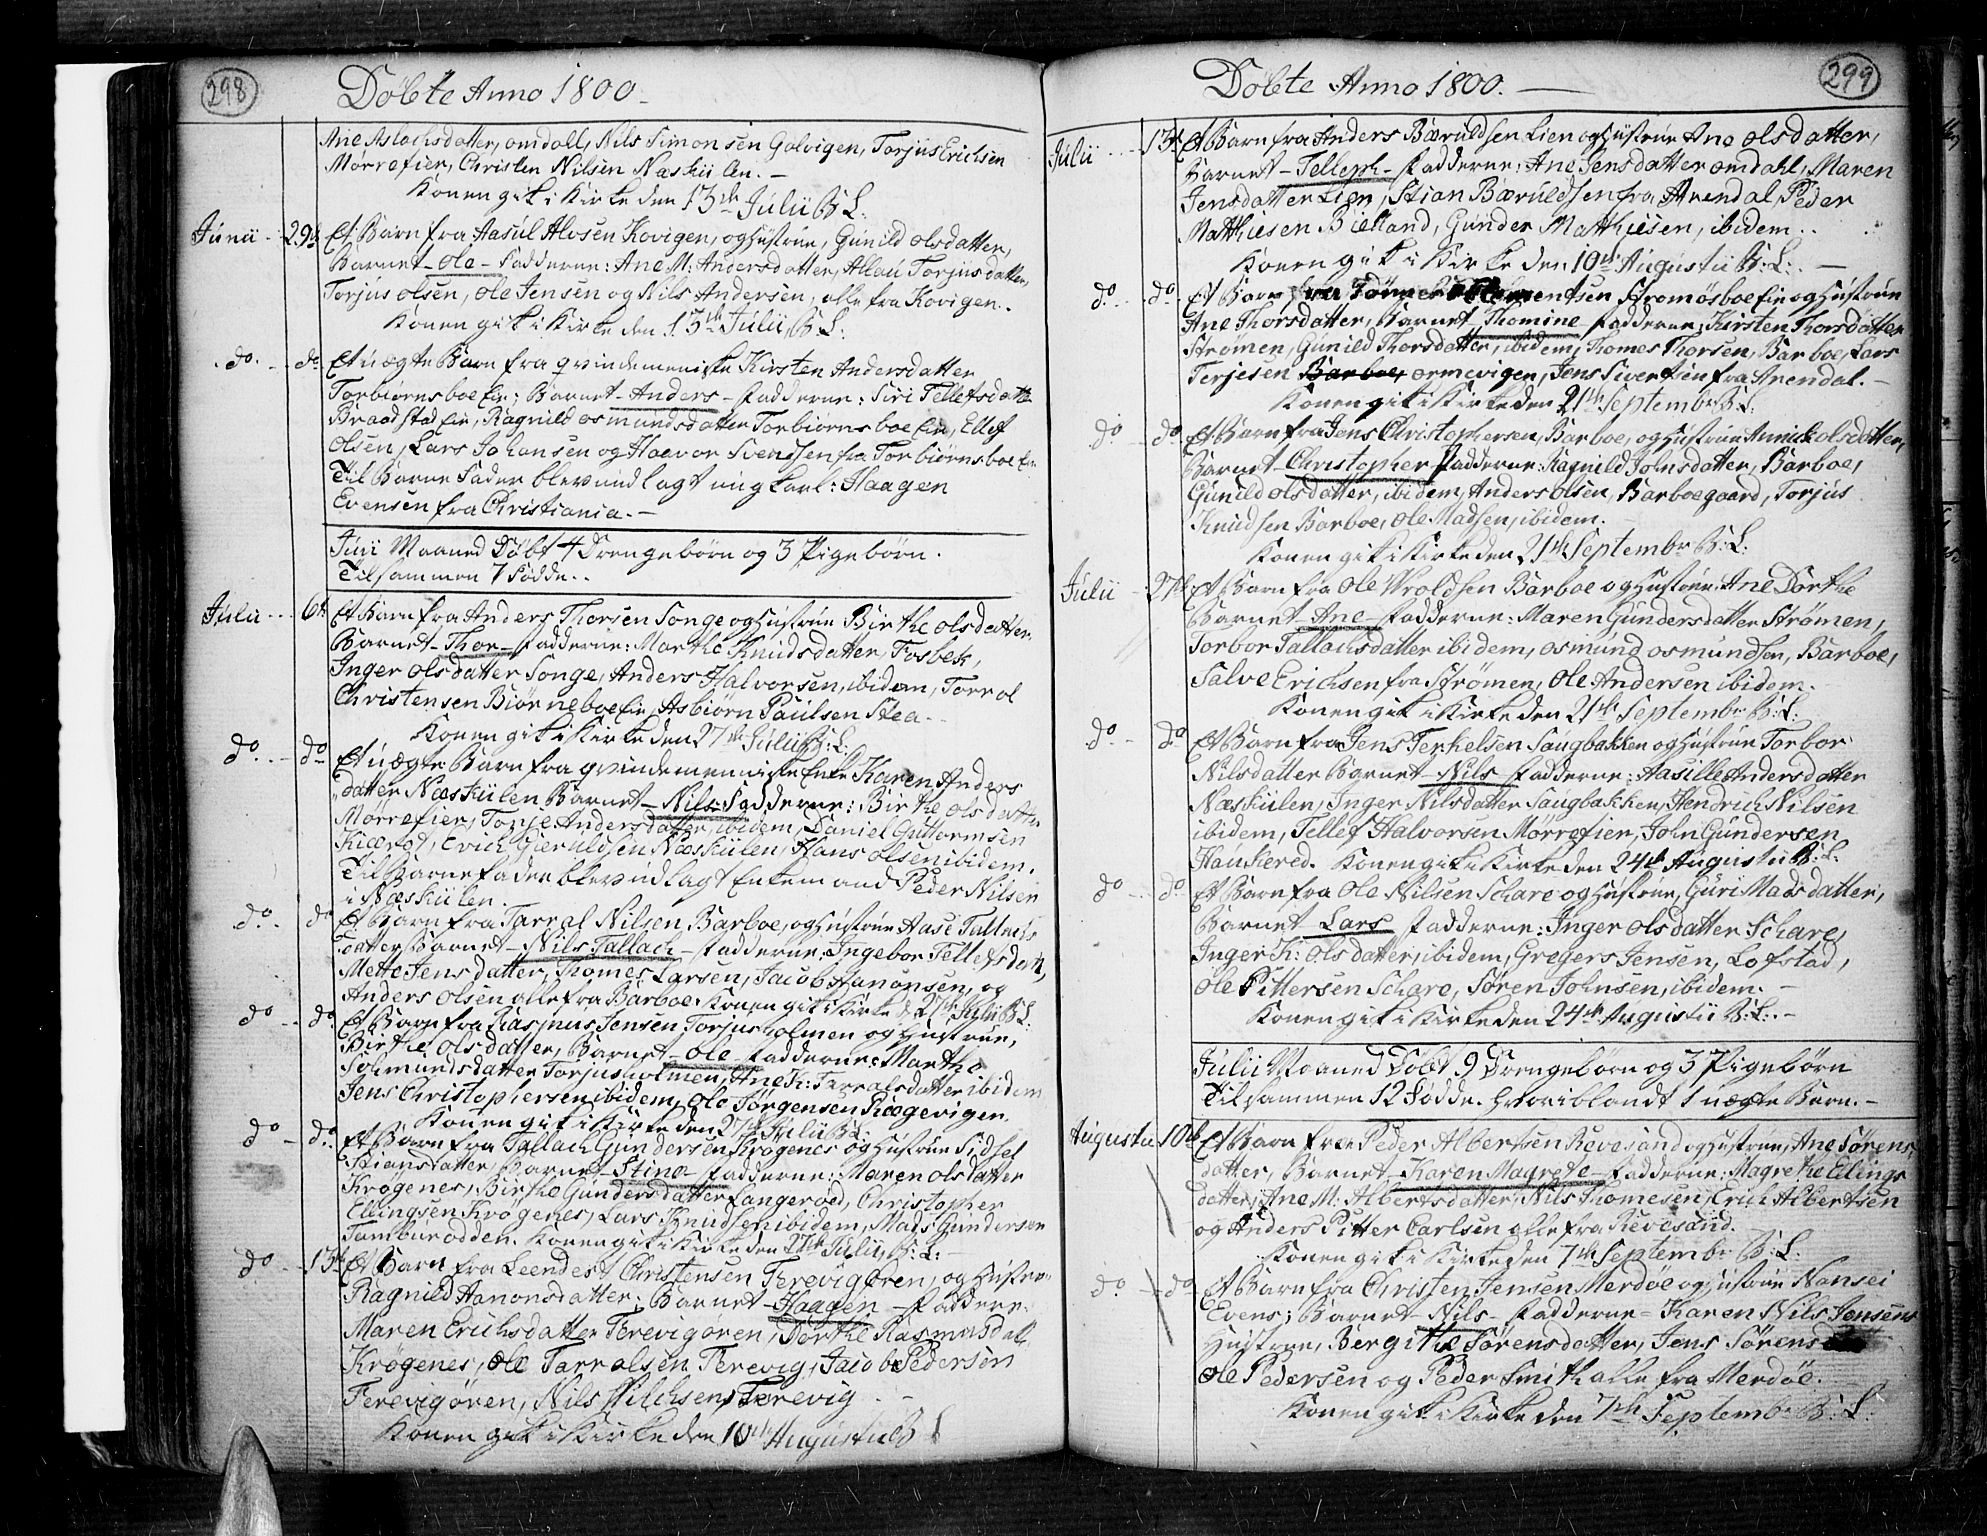 298
Döbte Anno 1800.
Ane Aslachsdatter, omdall, Nils Simonsen Galvigen, Torjus Erichsen
Mörrefier, Christen Nilsen Næskiilen.
Konen gik i Kirke den 13de Julii B: L:
Junii 29de Et Barn fra Aasul Alvsen Kovigen, og Hustrue, Gunild olsdatter,
Barnet - Ole - Fadderne: Ane M: Andersdatter, Torjusdatter,
Torjus olsen, Ole Jensen og Nils Andersen, alle fra Kovigen.
Konen gik i Kirke den 13de Julii B: L:
do. do. Et uægte Barn fra qvindemeniske Kirsten Andersdatter
Torbiörnsboe Ein; Barnet - Anders - Fadderne: Siri Tellefsdatter
Braadstad Ein, Ragnild osmundsdatter Torbiörnsboe Ein, Ellef
Olsen, Lars Johansen og Haevor Svendsen fra Torbiörnsboe Ein
Til Barne Fader blev undlagt ungkarl: Haagen
Evensen fra Christiania. -
Juni Maaned Döbt 4 Drengebörn og 3 Pigebörn.
Tilsammen 7 Födde.
Julii 6te Et Barn fra Anders Thorsen Songe og Hustrue Birthe olsdatter,
Barnet - Thor - Fadderne: Marthe Knudsdatter, Fosbek,
Inger olsdatter Songe, Anders Halvorsen, ibidem, Tarral
Christensen Biörneboe Ein, Asbiörn Paulsen Stea.
Konen gik i Kirke den 27de Julii B: L:
do. do. Et uægte Barn fra qvindemenniske Enke Karen Anders
datter Næskiilen Barnet - Nils - Fadderne: Birthe olsdatter
Mörrefier, Tonje Andersdatter, ibidem, Daniel Guttormsen
Kieröd, Erich Gieruldsen Næskiilen, Hans olsen ibidem.
Til Barnefader blev udlagt Enkemand Peder Nilsen
i Næskiilen.
do. do. Et Barn fra Tarral Nilsen, Barboe, og Hustrue Aase Tallachs
datter Barnet - Nils Tallach - Fadderne: Ingebor Tellefsdatt,
Mette Jensdatter, Thomes Larsen, Jacob Hanonsen, og
Anders olsen alle fra Barboe. Konen gik i Kirke d: 27de Julii B: L:
do. do. Et Barn fra Rasmus Jensen Torjusholmen og Hustrue,
Birthe olsdatter, Barnet - Ole - Fadderne: Marthe
Solmundsdatter Torjusholmen, Ane K: Tarralsdatter ibidem
Jens Christophersen ibidem, Ole Jörgensen Pisgevigen.
Konen gik i Kirke den 27de Julii B: L:
do. do. Et Barn fra Tallach Gundersen Krögenes og Hustrue Sidsel
Stiansdatter, Barnet - Stine - Fadderne: Maren olsdatter
Krögenes, Birthe Gundersdatter Langeröed, Christopher
Ellingsen Krögenes, Lars Knudsen ibidem, Mads Gundersen
Tamburodden. Konen gik i Kirke den 27de Julii, B: L: -
do. 13de Et Barn fra Leendert Christensen Terevigören, og Hustrue
Ragnild Hanonsdatter; Barnet - Haagen - Faddere:
Maren Erichsdatter Terevigören, Dorthe Rasmusdatt,
Krögenes, Ole Tarralsen Terevig, Jacob Pedersen
Terevigören, Nils Terevig -
Konen gik i Kirke den 10de Augustii B: L:
299
Döbte Anno 1800.
Julii 13de Et Barn fra Anders Bæruldsen Lien og Hustrue Ane olsdatter,
Barnet - Telleph - Fadderne: Ane Jensdatter omdahl, Maren
Jensdatter Lien, Stian Bæruldsen fra Arendal, Peder
Matthiesen Bielland, Gunder Matthiesen, ibidem.
Konen gik i Kirke den 10de Augustii B: L: -
do. do. Et Barn fra Tönnes Clementsen Strömösboe Ein og Hustrue
Ane Thorsdatter, Barnet - Thomine - Fadderne: Kirsten Thorsdatter
Strömen, Gunild Thorsdatter, ibidem, Thomes Thorsen, Barboe, Lars
Terjesen Barboe, ormevigen, Jens Sivertsen fra Arendal. -
Konen gik i Kirke den 21de September B: L:
do. do. Et Barn fra Jens Christophersen, Barboe, og Hustrue Annich olsdatter,
Barnet - Christopher Fadderne: Ragnild Johnsdatter, Barboe,
Gunild olsdatter, ibidem, Anders olsen, Barboegaard, Torjus
Knudsen Barboe, Ole Madsen, ibidem.
Konen gik i Kirke den 21de Septembr B: L:
Julii 27de Et Barn fra Ole Wroldsen Barboe og Hustrue, Ane Dorthe
Barnet - Ane - Fadderne: Maren Gundersdatter Strömen,
Torbor Tallachsdatter ibidem, osmund osmundsen, Barboe,
Salve Erichsen fra Strömen, Ole Andersen ibidem.
Konen gik i Kirke den 21de Septembr B: L:
do. do. Et Barn fra Jens Terkelsen Saugbakken og Hustrue Torbor
Nilsdatter Barnet - Nils - Fadderne: Aasille Andersdatter
Næskiilen, Inger Nilsdatter Saugbakken, Hendrich Nilsen
ibidem, Tellef Halvorsen Mörrefier, John Gundersen
Haukered. Konen gik i Kirke den 24de Augustii B: L:
do. do. Et Barn fra Ole Nilsen Schare og Hustrue, Guri Madsdatter,
Barnet Lars Fadderne: Inger olsdatter Schare,
Inger K: olsdatter, ibidem, Gregers Jensen, Lofstad,
Ole Pittersen Schare, Sören Johnsen, ibidem. -
Konen gik i Kirke den 24de Augustii B: L: -
Julii Maaned Döbt 9 Drengebörn og 3 Pigebörn
Tilsammen 12 Födde. Hvoriblandt 1 uægte Barn. -
Augustii 10de Et Barn fra Peder Albertsen Revesand og Hustrue, Ane Sörens
datter, Barnet - Karen Magrete - Fadderne: Magrethe Ellings
datter, Ane M: Albertsdatter, Nils Thomesen, Erich Albertsen
og Anders Pitter Carlsen alle fra Revesand.
Konen gik i Kirke den 7de Septembr B: L:
do. do. Et Barn fra Christen Jensen Merdöe og Hustrue Nansei
Evens; Barnet - Nils - Fadderne = Karen Nils Jensens
Hustrue, Bergithe Sörensdatter, Jens Sörens
Ole Pedersen og Peder Smith alle fra Merdöe.
Konen gik i Kirke den 7de Septembr B: L: